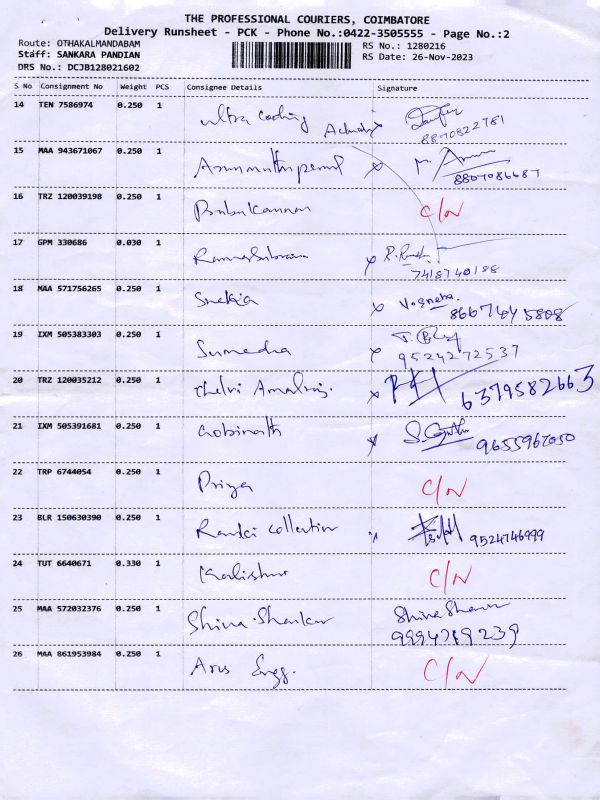 THE PROFESSIONAL COURIERS, COIMBATORE
Delivery Runsheet - PCK - Phone No.:0422-3505555 - Page No.:2
Route: OTHAKALMANDABAM RS No.: 1280216
Staff: SANKARA PANDIAN RS Date: 26-Nov-2023
DRS No.: DCJB128021602
S No Consignment No Weight PCS Consignee Details Signature
14 TEN 7586974 0.250 1 ultra coding
8870822781
15 MAA 943671067 0.250 1
8807086687
16 TRZ 120039198 0.250 1 Babukannan C/N
17 GPM 330686 0.030 1
7418740188
18 MAA 571756265 0.250 1 Sneka V. Sneha.
86674045808
19 IXM 505383303 0.250 1 Sumedha
9524272537
20 TRZ 120035212 0.250 1 6379582663
21 IXM 505391681 0.250 1 Gobinath
9655967050
22 TRP 6744054 0.250 1 Priya C/N
23 BLR 150630390 0.250 1 collection 9524746999
24 TUT 6640671 0.330 1 C/N
25 MAA 572032376 0.250 1 Shiva. Shankar
9994789239
26 MAA 861953984 0.250 1 Engg. C/N